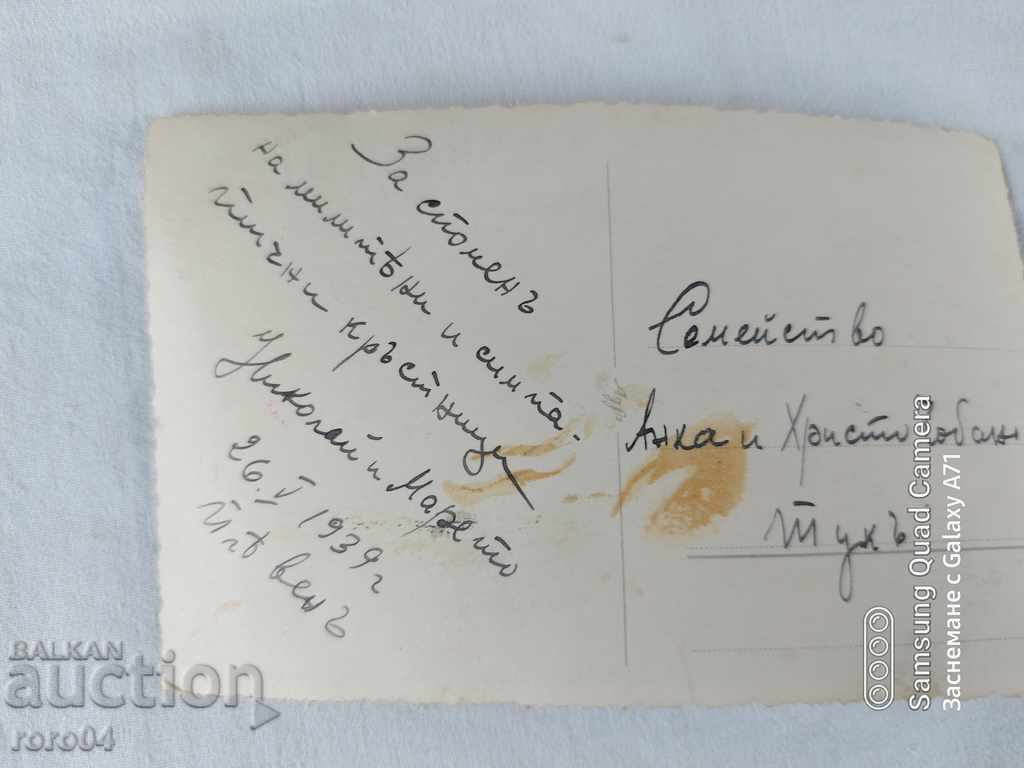 За споменъ
на милитѣ ни и симпа-
тични кръстници
Николай и Марето
26.V 1939 г
Плѣвенъ
Семейство
Анка и Христо
Тукъ
Samsung Quad Camera
Заснемане с Galaxy A71
BALKAN
auction
roro04